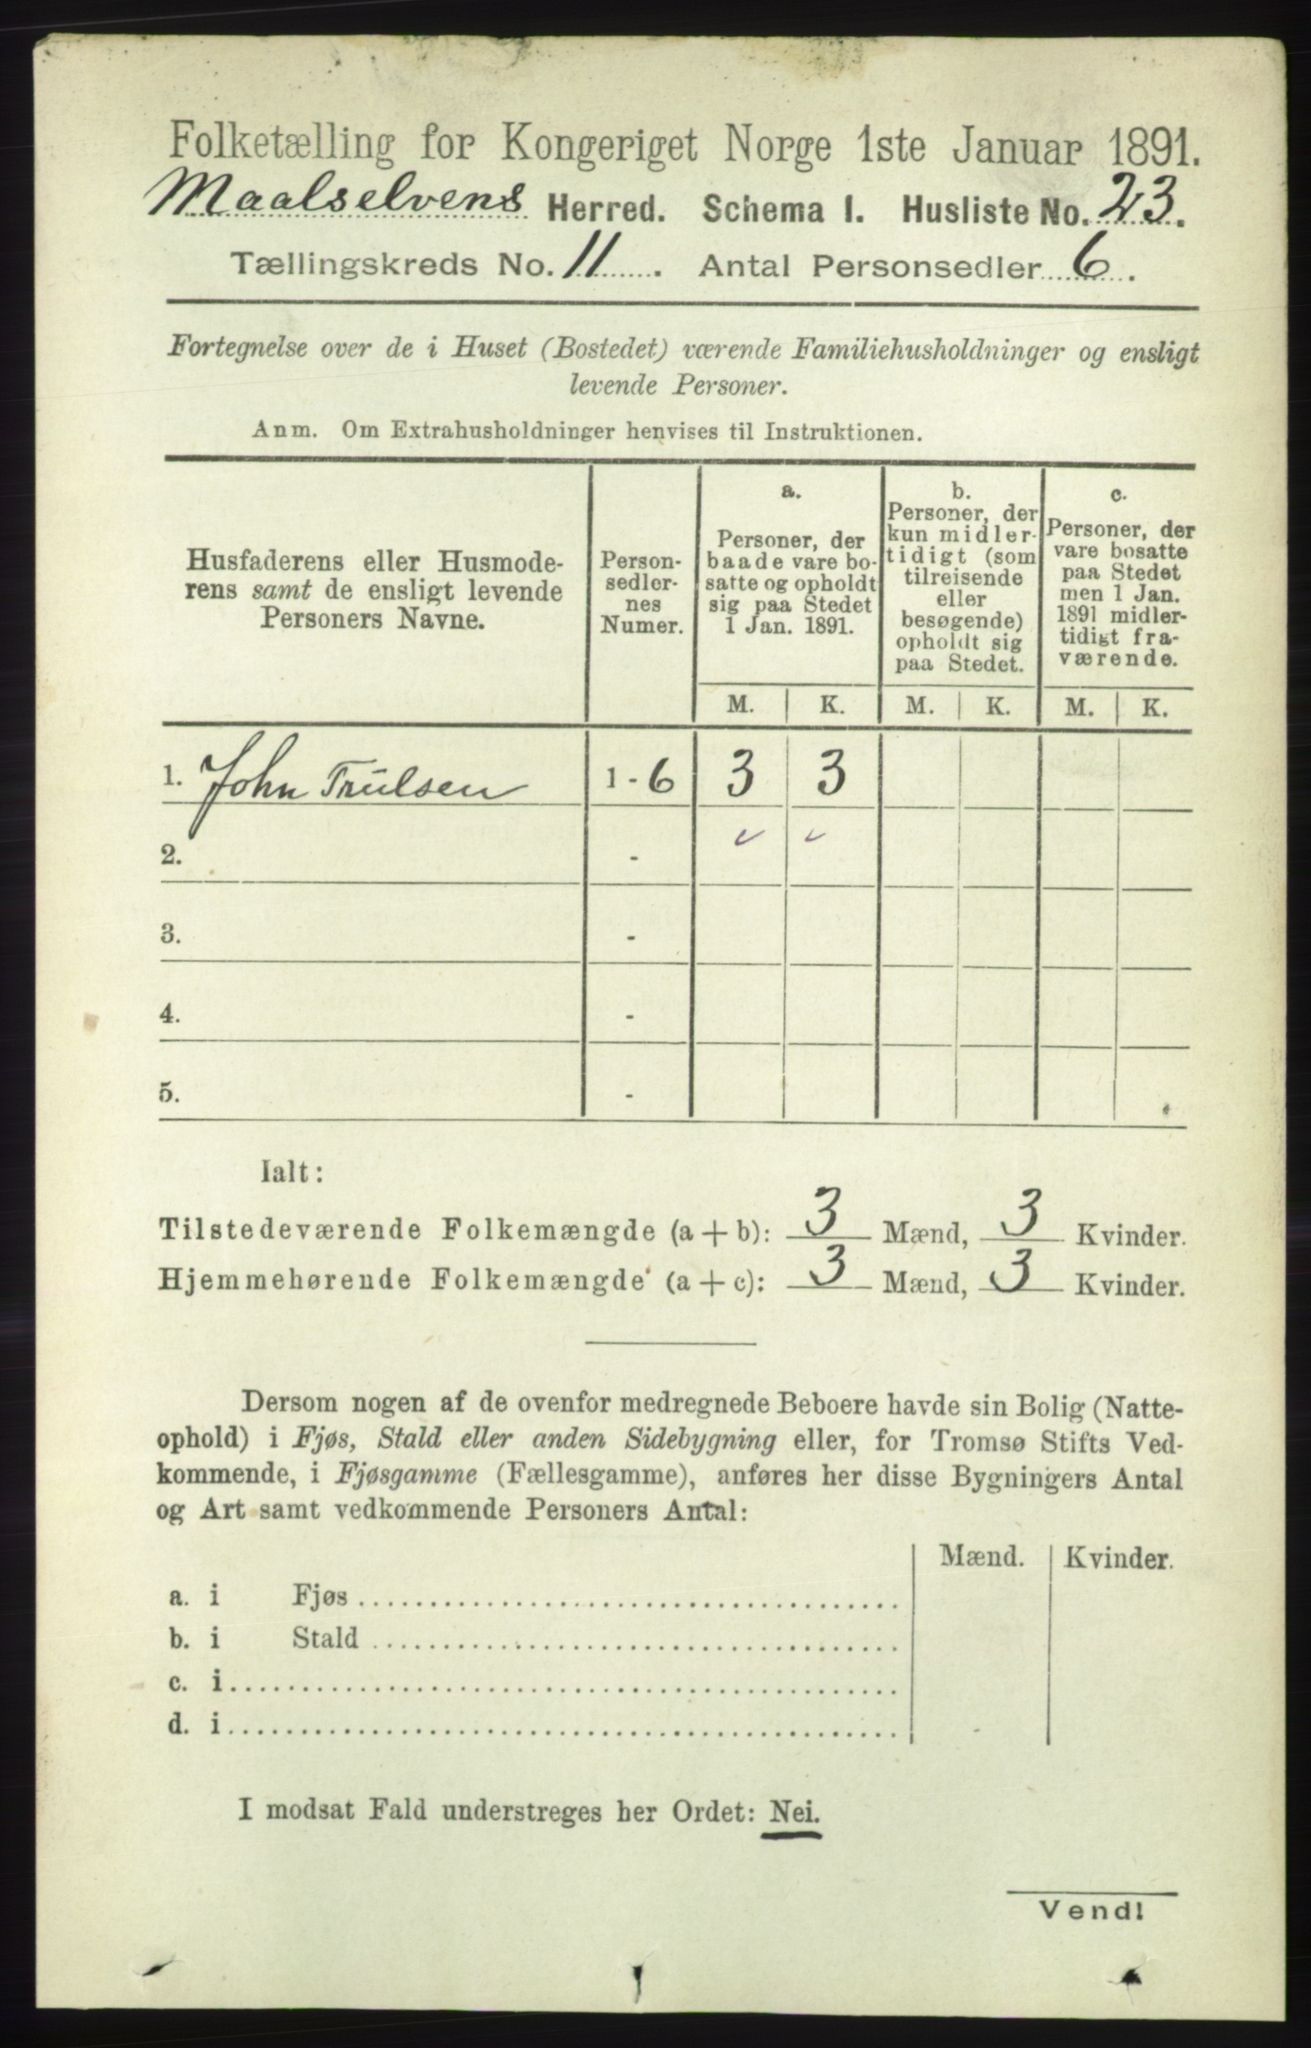 Folketælling for Kongeriget Norge 1ste Januar 1891.
Maalselvens Herred. Schema I. Husliste No. 23.
Tællingskreds No. 11. Antal Personsedler 6.
Fortegnelse over de i Huset (Bostedet) værende Familiehusholdninger og ensligt
levende Personer.
Anm. Om Extrahusholdninger henvises til Instruktionen.
Husfaderens eller Husmode-
rens samt de ensligt levende
Personers Navne.
Person-
sedler-
nes
Numer.
a.
Personer, der
baade vare bo-
satte og opholdt
sig paa Stedet
1 Jan. 1891.
b.
Personer, der
kun midler-
tidigt (som
tilreisende
eller
besøgende)
opholdt sig
paa Stedet.
c.
Personer, der
vare bosatte
paa Stedet
men 1 Jan.
1891 midler-
tidigt fra-
værende.
M. K. M. K. M. K.
1. John Trulsen 1 - 6 3 3
2. -
3. -
4. -
5. -
Ialt:
Tilstedeværende Folkemængde (a + b): 3 Mænd, 3 Kvinder.
Hjemmehørende Folkemængde (a + c): 3 Mænd, 3 Kvinder.
Dersom nogen af de ovenfor medregnede Beboere havde sin Bolig (Natte-
ophold) i Fjøs, Stald eller anden Sidebygning eller, for Tromsø Stifts Ved-
kommende, i Fjøsgamme (Fællesgamme), anføres her disse Bygningers Antal
og Art samt vedkommende Personers Antal:
Mænd. Kvinder.
a. i Fjøs
b. i Stald
c. i
d. i
I modsat Fald understreges her Ordet: Nei.
Vend!